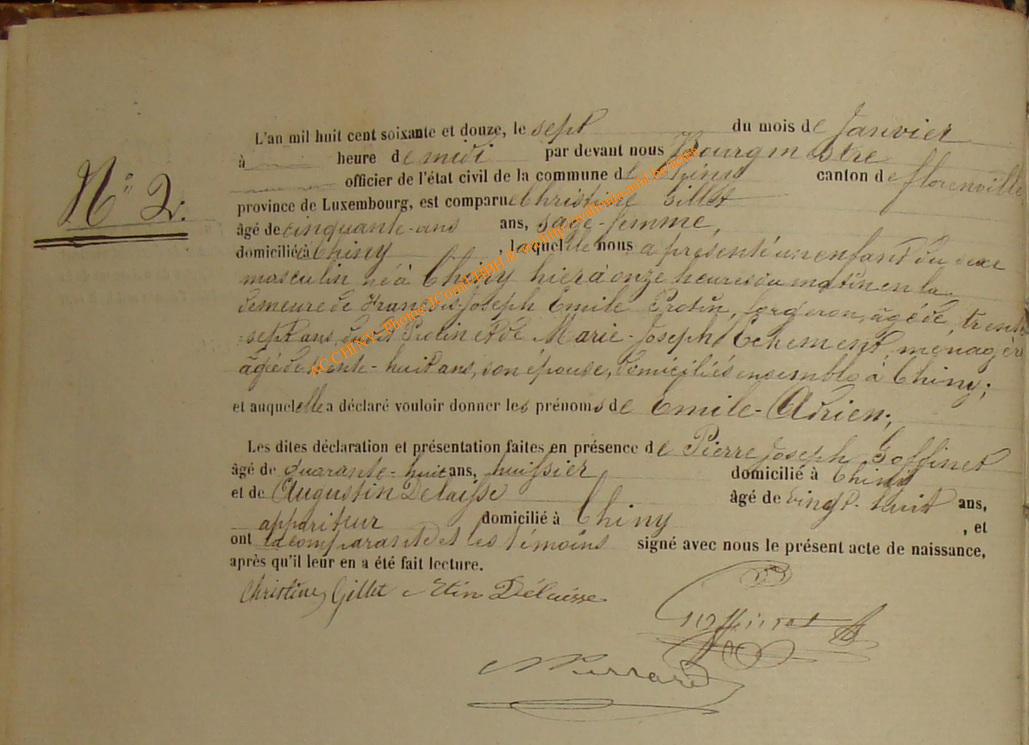 L'an mil huit cent soixante et douze, le sept du mois de Janvier
à heure de midi par devant nous Bourgmestre
officier de l'état civil de la commune de Chiny canton de florenville
N° 2.
province de Luxembourg, est comparue Christine Gillet
âgé de cinquante-ans ans, sage-femme,
domicilié à Chiny, laquelle nous a présenté un enfant du sexe
masculin né à Chiny hier à onze heures du matin en la
demeure de François-Joseph Emile Protin, forgeron, âgé de trente
sept ans, dudit Protin et de Marie-Joseph Echement, menagère
âgée de trente-huit ans, son épouse, domiciliés ensemble à Chiny;
et auquel elle a déclaré vouloir donner les prénoms de Emile-Adrien;
Les dites déclaration et présentation faites en présence de Pierre Joseph Goffinet
âgé de quarante-huit ans, huissier domicilié à Chiny
et de Augustin Delaisse âgé de vingt-huit ans,
appariteur domicilié à Chiny, et
ont la comparante et les témoins signé avec nous le présent acte de naissance,
après qu'il leur en a été fait lecture.
Christine Gillet Delaisse
Goffinet